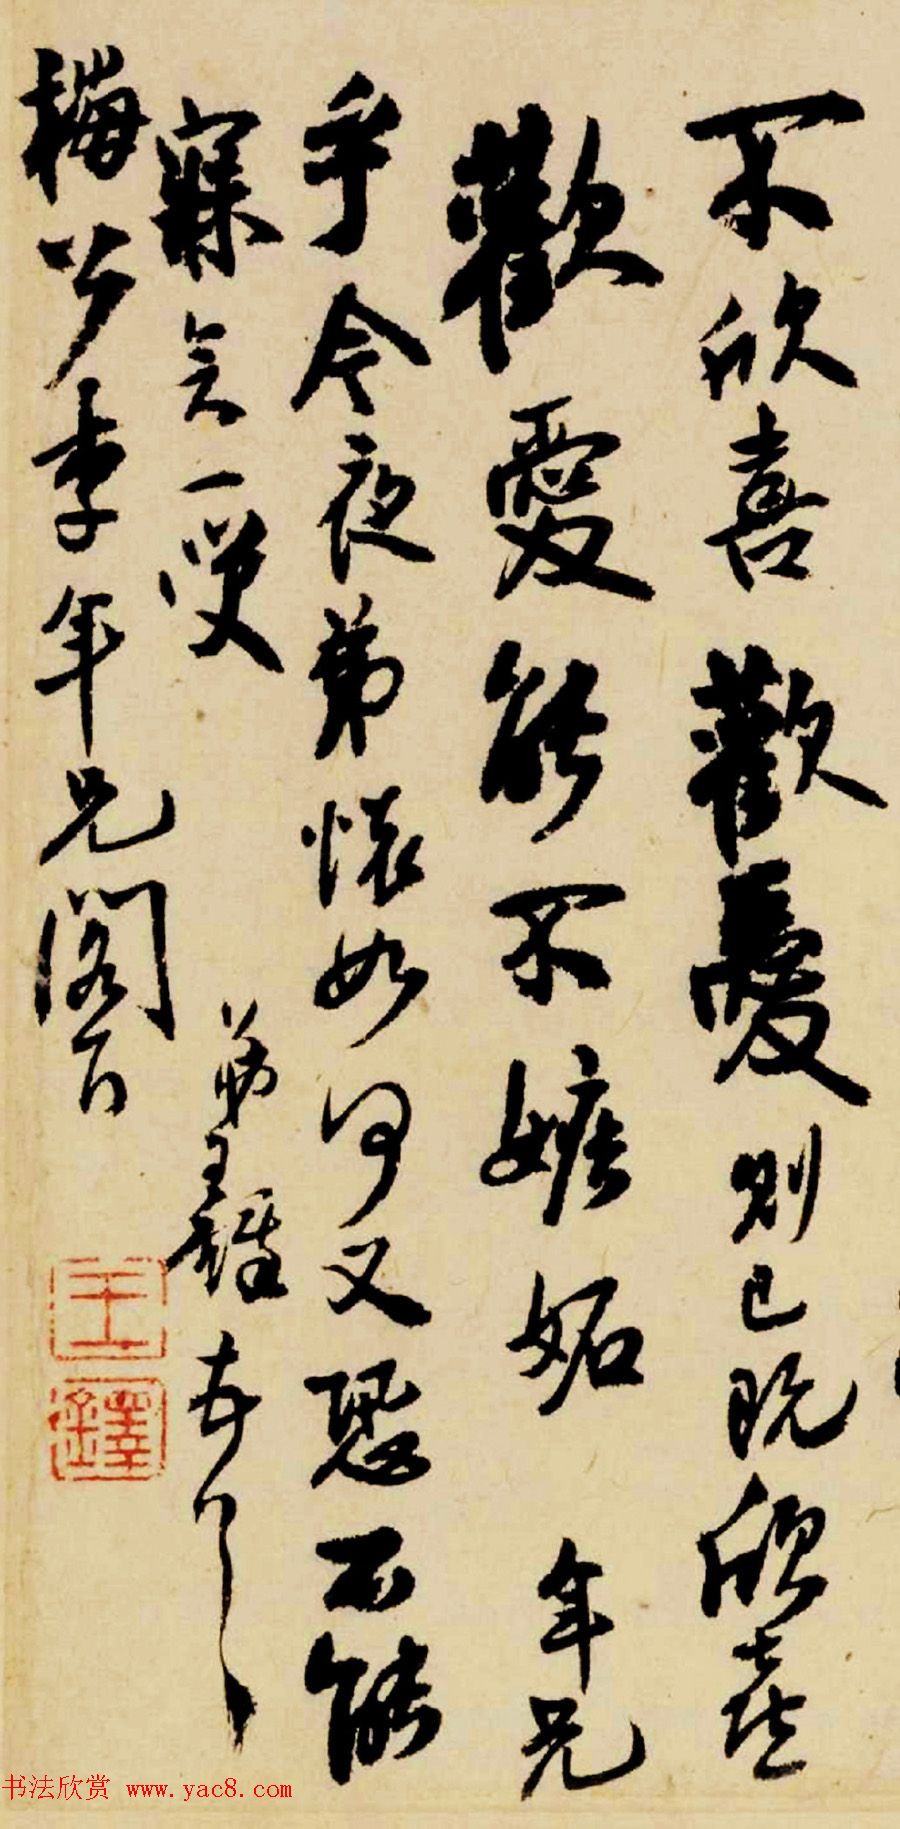 不欣喜歡愛則已既欣喜
歡愛能不嫉妬年兄
乎今夜弟懷如何又恐不能
寐矣一叟
弟王鐸頓首
梅公李年兄閣下
王鐸
书法欣赏 www.yac8.com